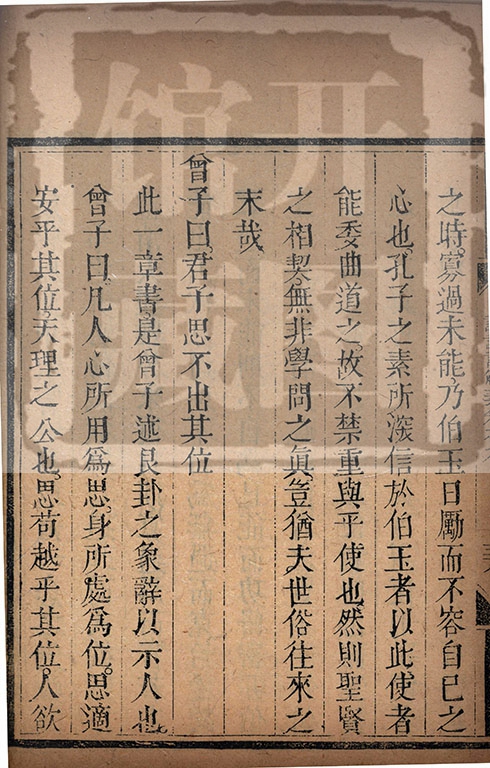 之時。寡過未能。乃伯玉日勵而不容自已之
心也。孔子之素所深信於伯玉者以此。使者
能委曲道之。故不禁重與乎使也。然則聖賢
之相契。無非學問之眞。豈猶夫世俗往來之
末哉。
曾子曰。君子思不出其位
此一章書。是曾子述艮卦之象辭以示人也。
曾子曰。凡人心所用爲思。身所處爲位。思適
安乎其位。天理之公也。思苟越乎其位。人欲